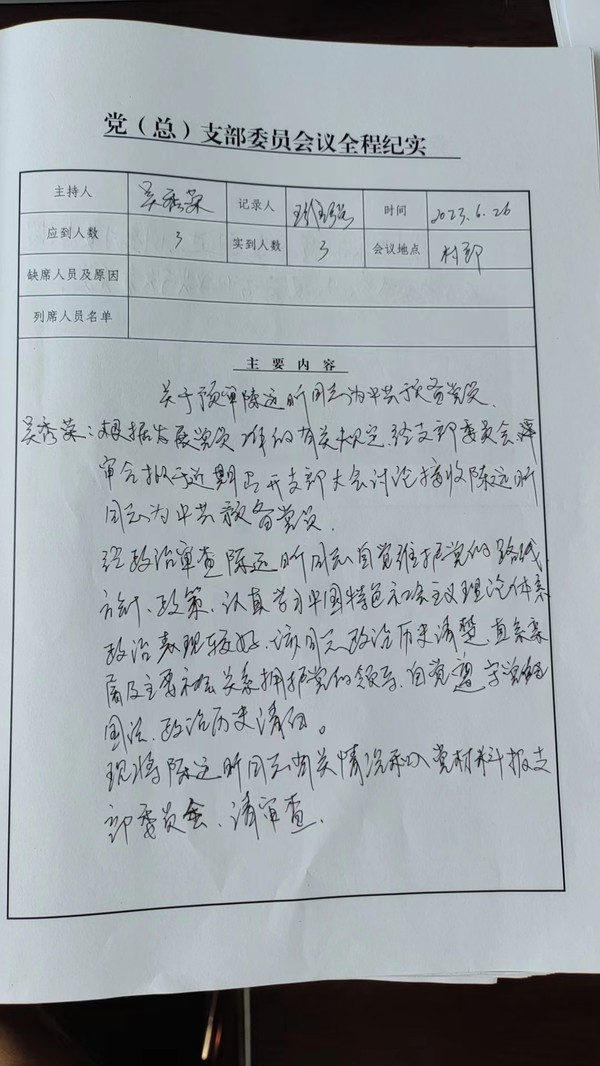 党（总）支部委员会议全程纪实
主持人 吴秀荣 记录人 时间 2023.6.26
应到人数 3 实到人数 3 会议地点 村部
缺席人员及原因
列席人员名单
主要内容
关于预审陈远昕同志为中共预备党员.
吴秀荣：根据发展党员 的有关规定.经支部委员会
审合拟于近期召开支部大会讨论接收陈远昕
同志为中共预备党员.
经政治审查陈远昕同志自觉维护党的路线
方针、政策、认真学习中国特色社会主义理论体系
政治表现较好.该同志政治历史清楚.直系亲
属及主要社会关系拥护党的领导.自觉遵守党纪
国法、政治历史清白。
现将陈远昕同志有关情况和入党材料报支
部委员会、请审查.